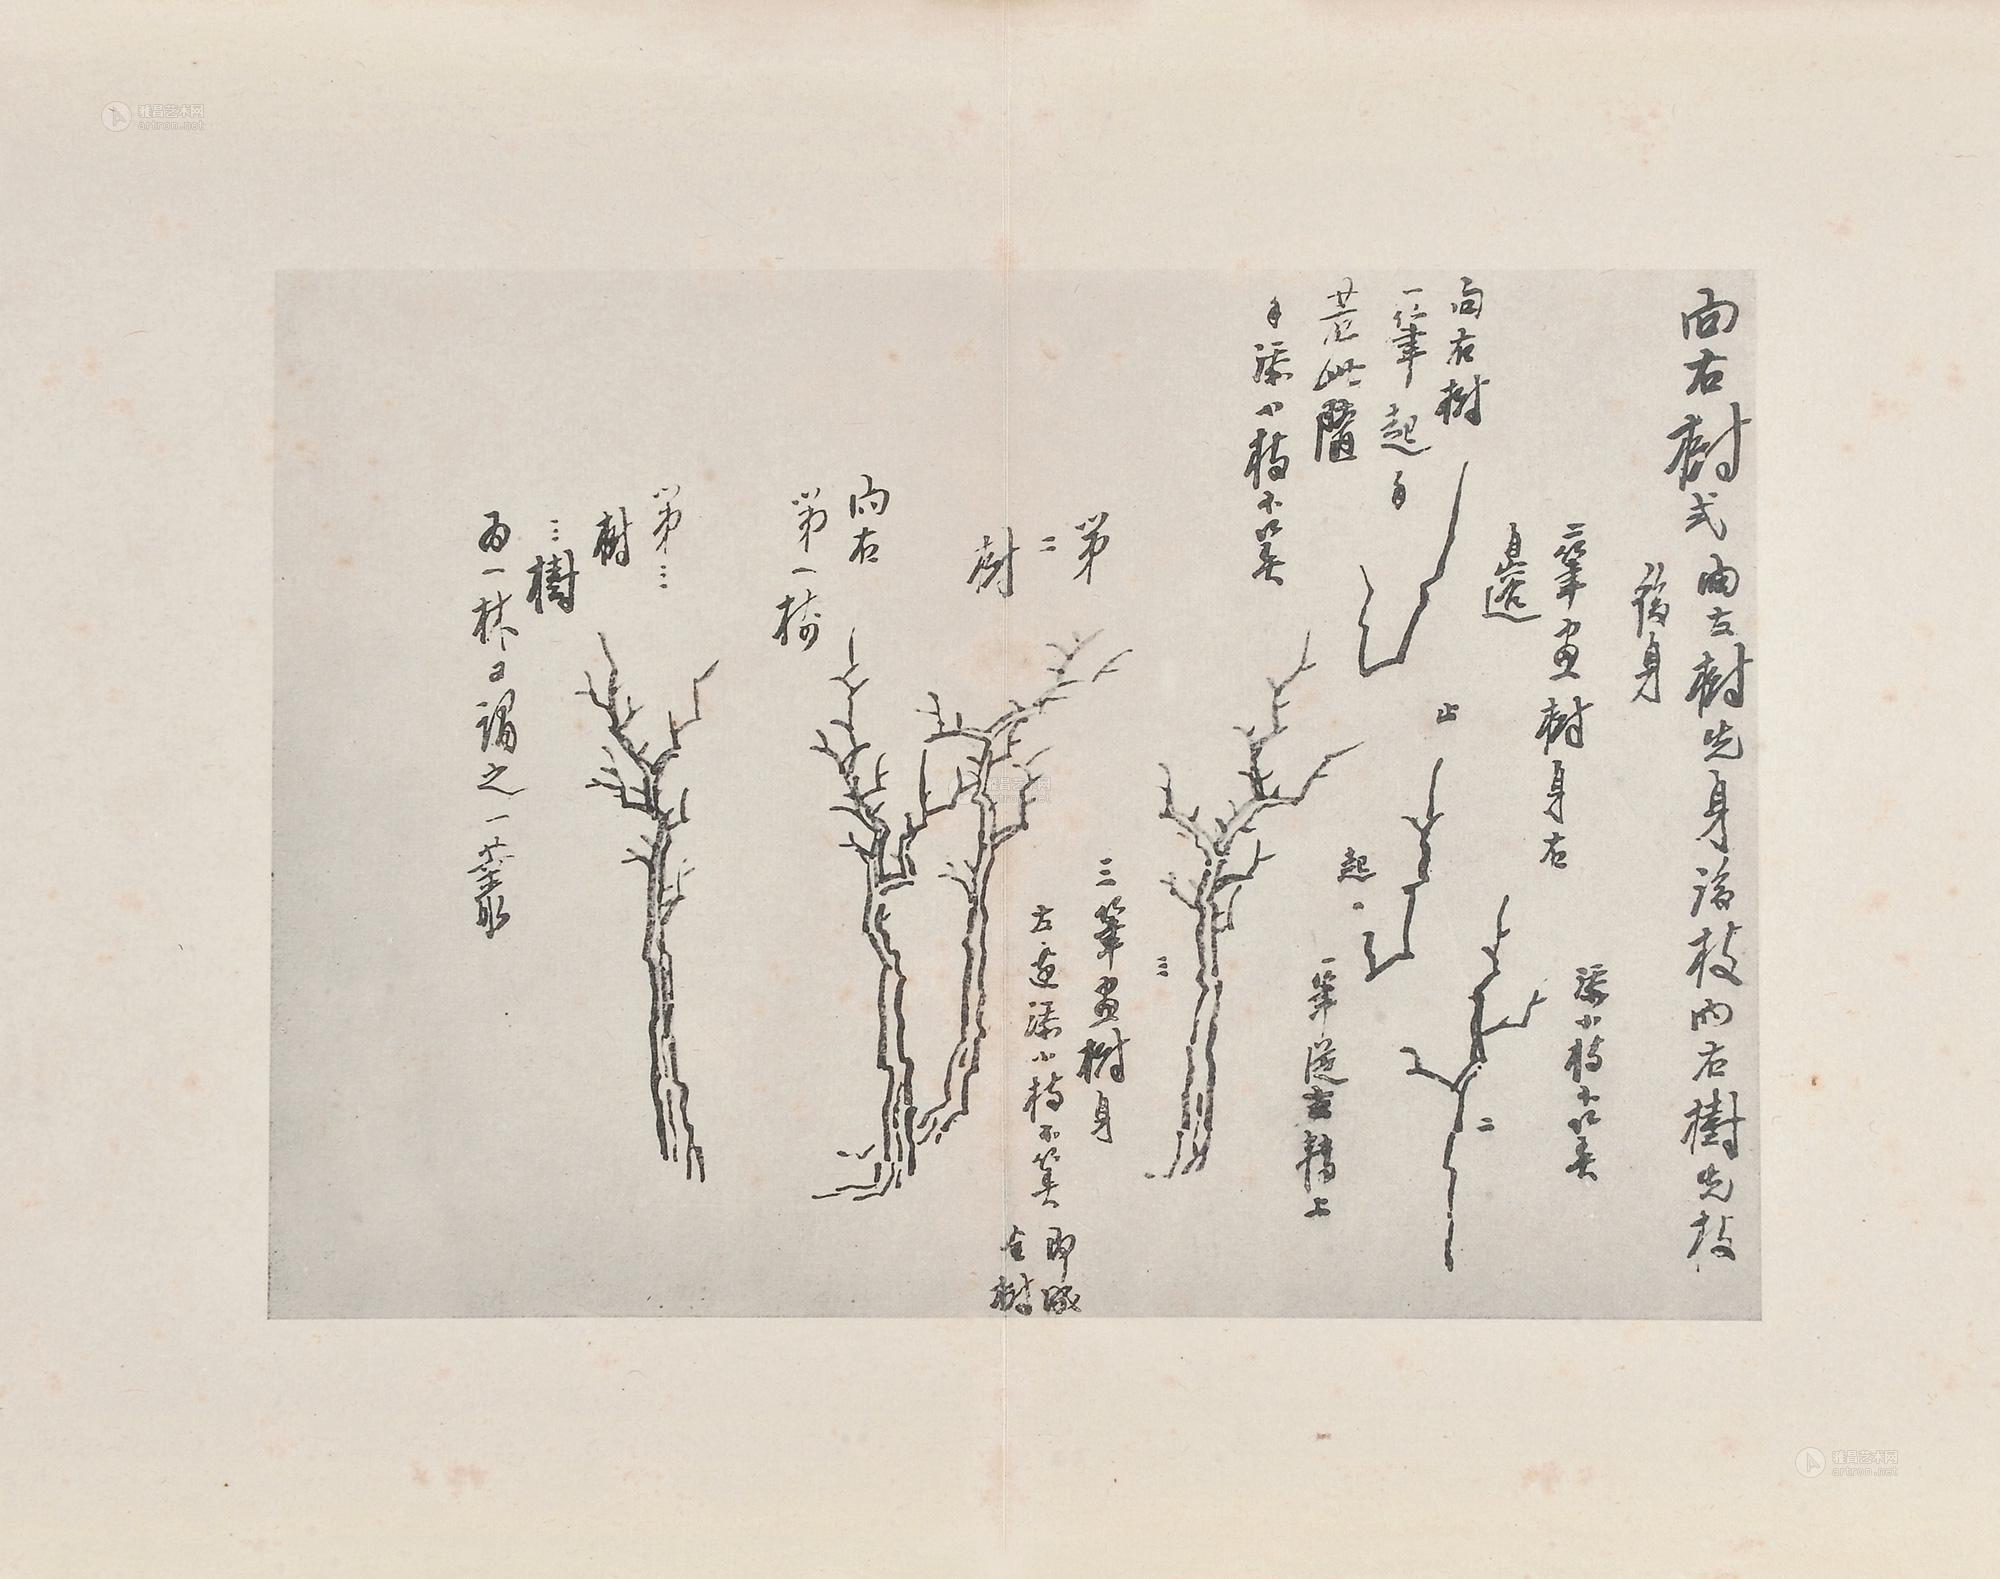 向右樹式向左樹先身後枝向右樹先枝
後身
添小枝不算
二筆畫樹身右
身邊
二
向右樹
一筆起手
若此
手添小枝不算
止
起
一筆從左轉上
三
三筆畫樹身
左邊添小枝不算
即成
全樹
第
二
樹
向右
第一樹
第三
樹
三樹
為一林曰謂之一叢
雅昌艺术网
artron.net
雅昌艺术网
artron.net